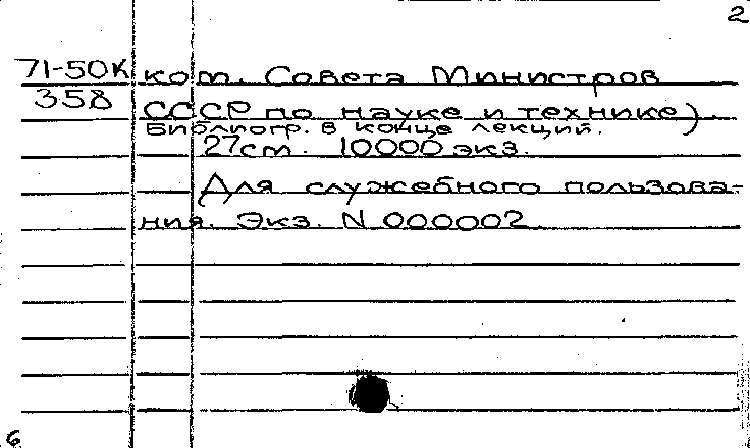 2
71-50К ком. Совета Министров
358 СССР по науке и технике).
Библиогр. в конце лекций.
27см. 10000 экз.
Для служебного пользова-
ния. Экз. N 000002.
6